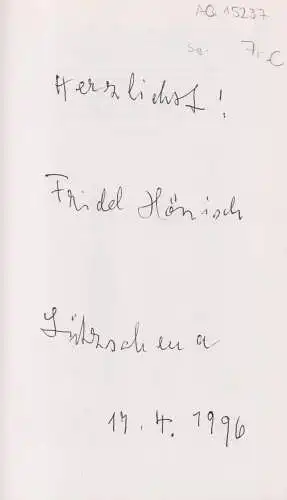 AQ 15237
sg. 7,-€
Herzlichst!
Fridel Hönisch
Lützschena
17.4.1996